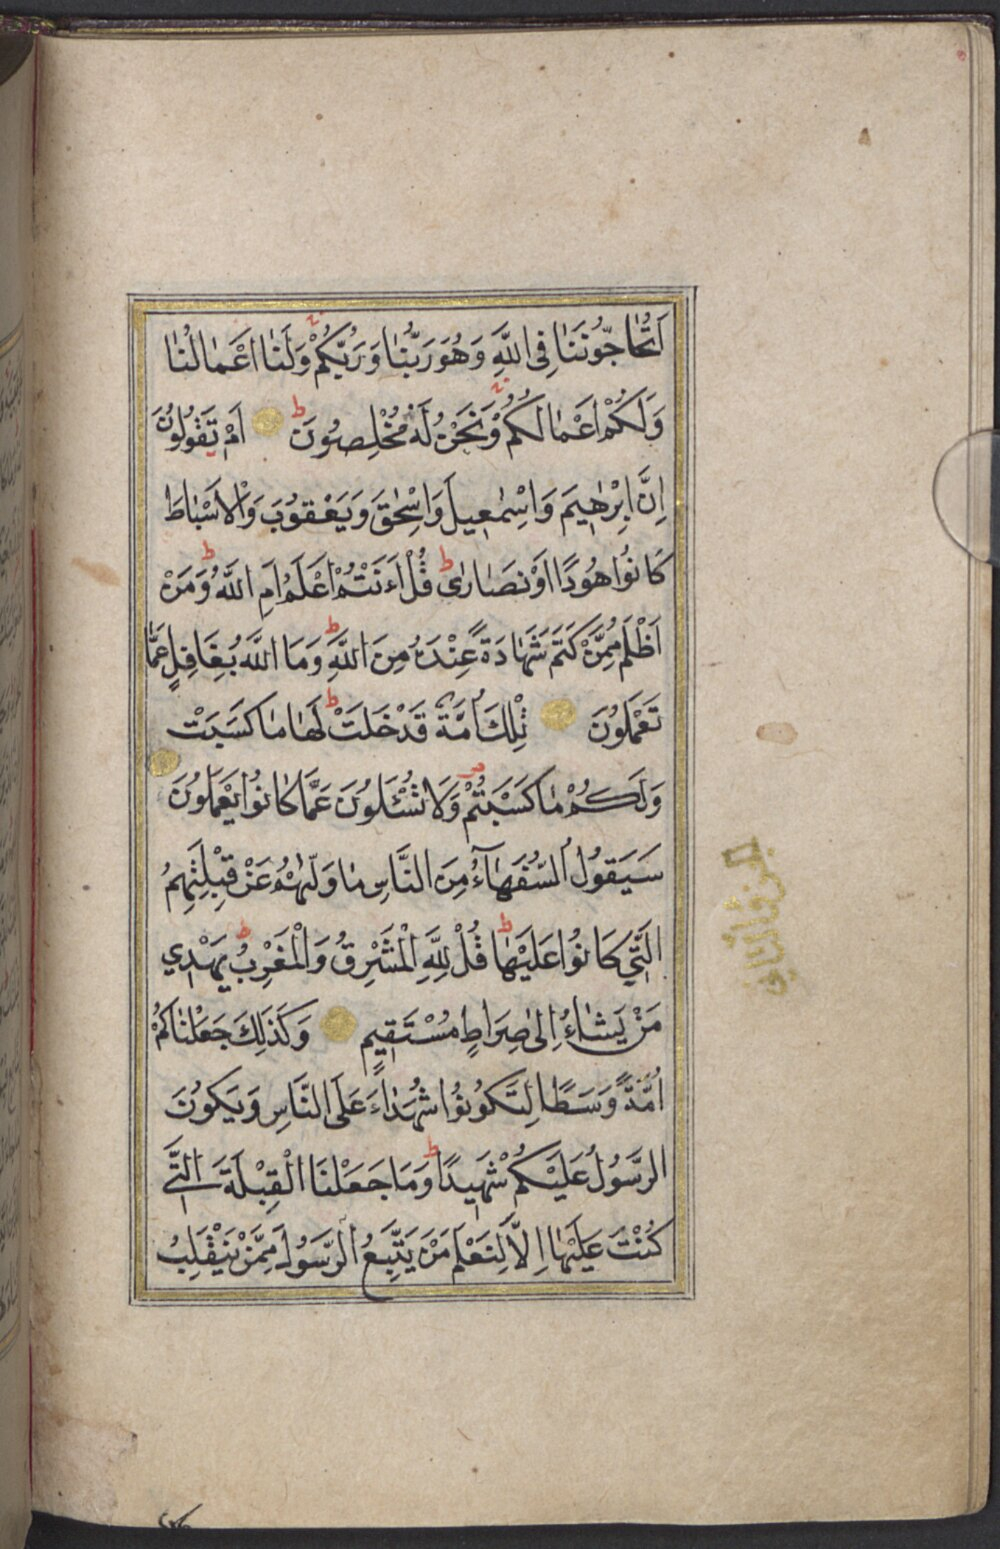 اَتُحَاجّوُنَنَا فِى اللّٰهِ وَهُوَ رَبُّنَا وَرَبُّكُمْ وَلَنَا اَعْمَالُنَا
وَلَكُمْ اَعْمَالُكُمْ وَنَحْنُ لَهُ مُخْلِصُونَ ط اَمْ تَقُولُونَ
اِنَّ اِبْرٰهٖيمَ وَاِسْمٰعٖيلَ وَاِسْحٰقَ وَيَعْقوُبَ وَالْاَسْبَاطَ
كَانُوا هُودًا اَوْ نَصَارٰى ط قُلْ ءَاَنْتُمْ اَعْلَمُ اَمِ اللّٰهُ ط وَمَنْ
اَظْلَمُ مِمَّنْ كَتَمَ شَهَادَةً عِنْدَهُ مِنَ اللّٰهِ ط وَمَا اللّٰهُ بِغَافِلٍ عَمَّا
تَعْمَلُونَ تِلْكَ اُمَّةٌ قَدْ خَلَتْ ط لَهَا مَا كَسَبَتْ
وَلَكُمْ مَا كَسَبْتُمْ وَلَا تُسْئَلُونَ عَمَّا كَانُوا يَعْمَلُونَ
سَيَقُولُ السُّفَهَآءُ مِنَ النَّاسِ مَا وَلّٰيهُمْ عَنْ قِبْلَتِهِمُ
الَّتٖى كَانُوا عَلَيْهَا ط قُلْ لِلّٰهِ الْمَشْرِقُ وَالْمَغْرِبُ ط يَهْدٖي
مَنْ يَشَاءُ اِلٰى صِرَاطٍ مُسْتَقٖيمٍ وَكَذٰلِكَ جَعَلْنَاكُمْ
اُمَّةً وَسَطًا لِتَكُونُوا شُهَدَاءَ عَلَى النَّاسِ وَيَكُونَ
الرَّسُولُ عَلَيْكُمْ شَهٖيدًا ط وَمَا جَعَلْنَا الْقِبْلَةَ الَّتٖى
كُنْتَ عَلَيْهَا اِلَّا لِنَعْلَمَ مَنْ يَتَّبِعُ الرَّسُولَ مِمَّنْ يَنْقَلِبُ
الجزء الثانى